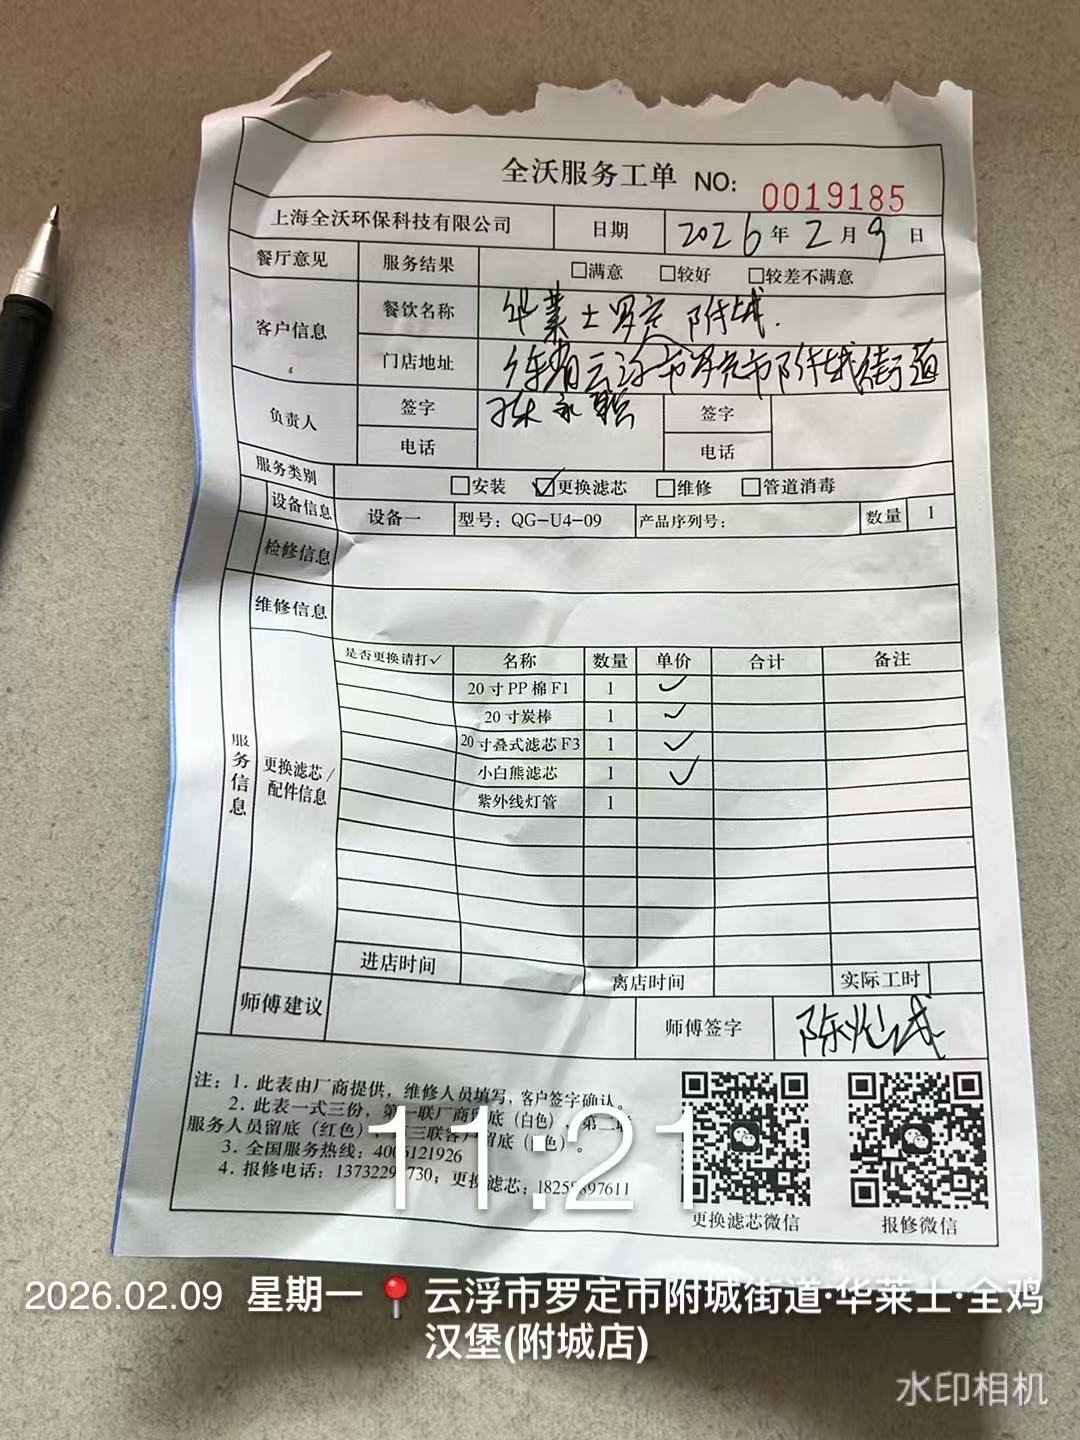 全沃服务工单 NO: 0019185
上海全沃环保科技有限公司 日期 2026年2月9日
餐厅意见 服务结果 □满意 □较好 □较差不满意
客户信息 餐饮名称 华莱士罗定附城.
门店地址 广东省云浮市罗定市附城街道
负责人 签字 签字
电话 电话
服务类别 □安装 ☑更换滤芯 □维修 □管道消毒
设备信息 设备一 型号: QG-U4-09 产品序列号: 数量 1
检修信息
维修信息
服务信息
更换滤芯/配件信息
是否更换请打✓ 名称 数量 单价 合计 备注
20寸PP棉F1 1 ✓
20寸炭棒 1 ✓
20寸叠式滤芯F3 1 ✓
小白熊滤芯 1 ✓
紫外线灯管 1
进店时间 离店时间 实际工时
师傅建议 师傅签字 陈
注: 1. 此表由厂商提供, 维修人员填写, 客户签字确认。
2. 此表一式三份, 第一联厂商留底 (白色)、第二联
服务人员留底 (红色)、第三联客户留底
3. 全国服务热线: 4006121926
4. 报修电话: 更换滤芯:
更换滤芯微信 报修微信
11:21
2026.02.09 星期一 云浮市罗定市附城街道·华莱士·全鸡
汉堡(附城店)
水印相机